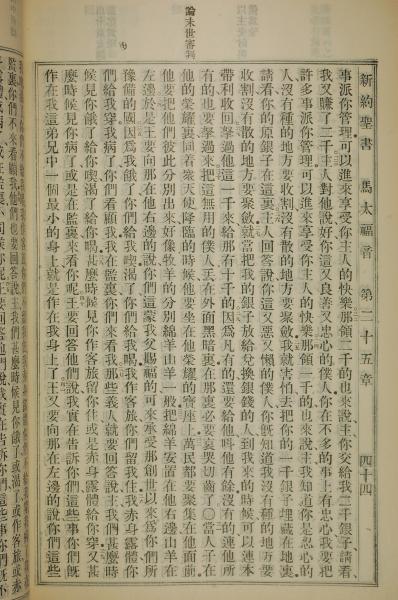 新約聖書 馬太福音 第二十五章 四十四
論末世審判
事派你管理可以進來享受你主人的快樂那領二千的也來說主你交給我二千銀子請看
我又賺了二千主人對他說好你這又良善又忠心的僕人你在不多的事上有忠心我要把
許多事派你管理可以進來享受你主人的快樂那領一千的也來說主我知道你是忍心的
人沒有種的地方要收割沒有散的地方要聚斂我就害怕去把你的一千銀子埋藏在地裏
請看你的原銀子在這裏主人回答說你這又惡又懶的僕人你旣知道我沒有種的地方要
收割沒有散的地方要聚斂就當把我的銀子放給兌換銀錢的人到我來的時候可以連本
帶利收回拏過他這一千來給那有十千的因爲凡有的還要給他叫他有餘沒有的連他所
有的也要拏過來把這無用的僕人丟在外面黑暗裏在那裏必要哀哭切齒了〇當人子在
他的榮耀裏同着衆天使降臨的時候他要坐在他榮耀的寶座上萬民都要聚集在他面前
他要把他們彼此分別出來好像牧羊的分別綿羊山羊一般把綿羊安置在他右邊山羊在
左邊於是王要向那在他右邊的說你們這蒙我父賜福的可來承受那創世以來爲你們所
豫備的國因爲我餓了你們給我吃渴了你們給我喝我作客旅你們留我住我赤身露體你
們給我穿我病了你們看顧我我在監裏你們來看我那些義人就要回答說主我們甚麼時
候見你餓了給你吃渴了給你喝甚麼時候見你作客旅留你住或是赤身露體給你穿又甚
麼時候見你病了或是在監裏來看你呢王要回答他們說我實在告訴你們這些事你們旣
作在我這弟兄中一個最小的身上就是作在我身上了王又要向那在左邊的說你們這些